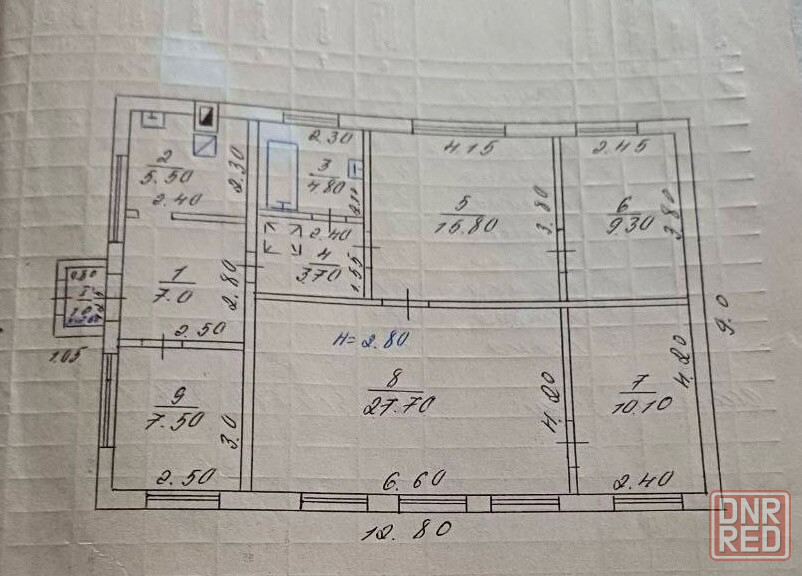 2
5.50
2.40
2.30
2.30
3
4.80
4.15
5
15.80
3.80
2.45
6
9.30
3.80
2.40
4
3.70
1.55
1
7.0
2.80
2.50
0.80
I
1.0
1.05
9
7.50
3.0
2.50
H=2.80
8
27.70
4.20
6.60
7
10.10
4.20
2.40
9.0
12.80
DNR
RED